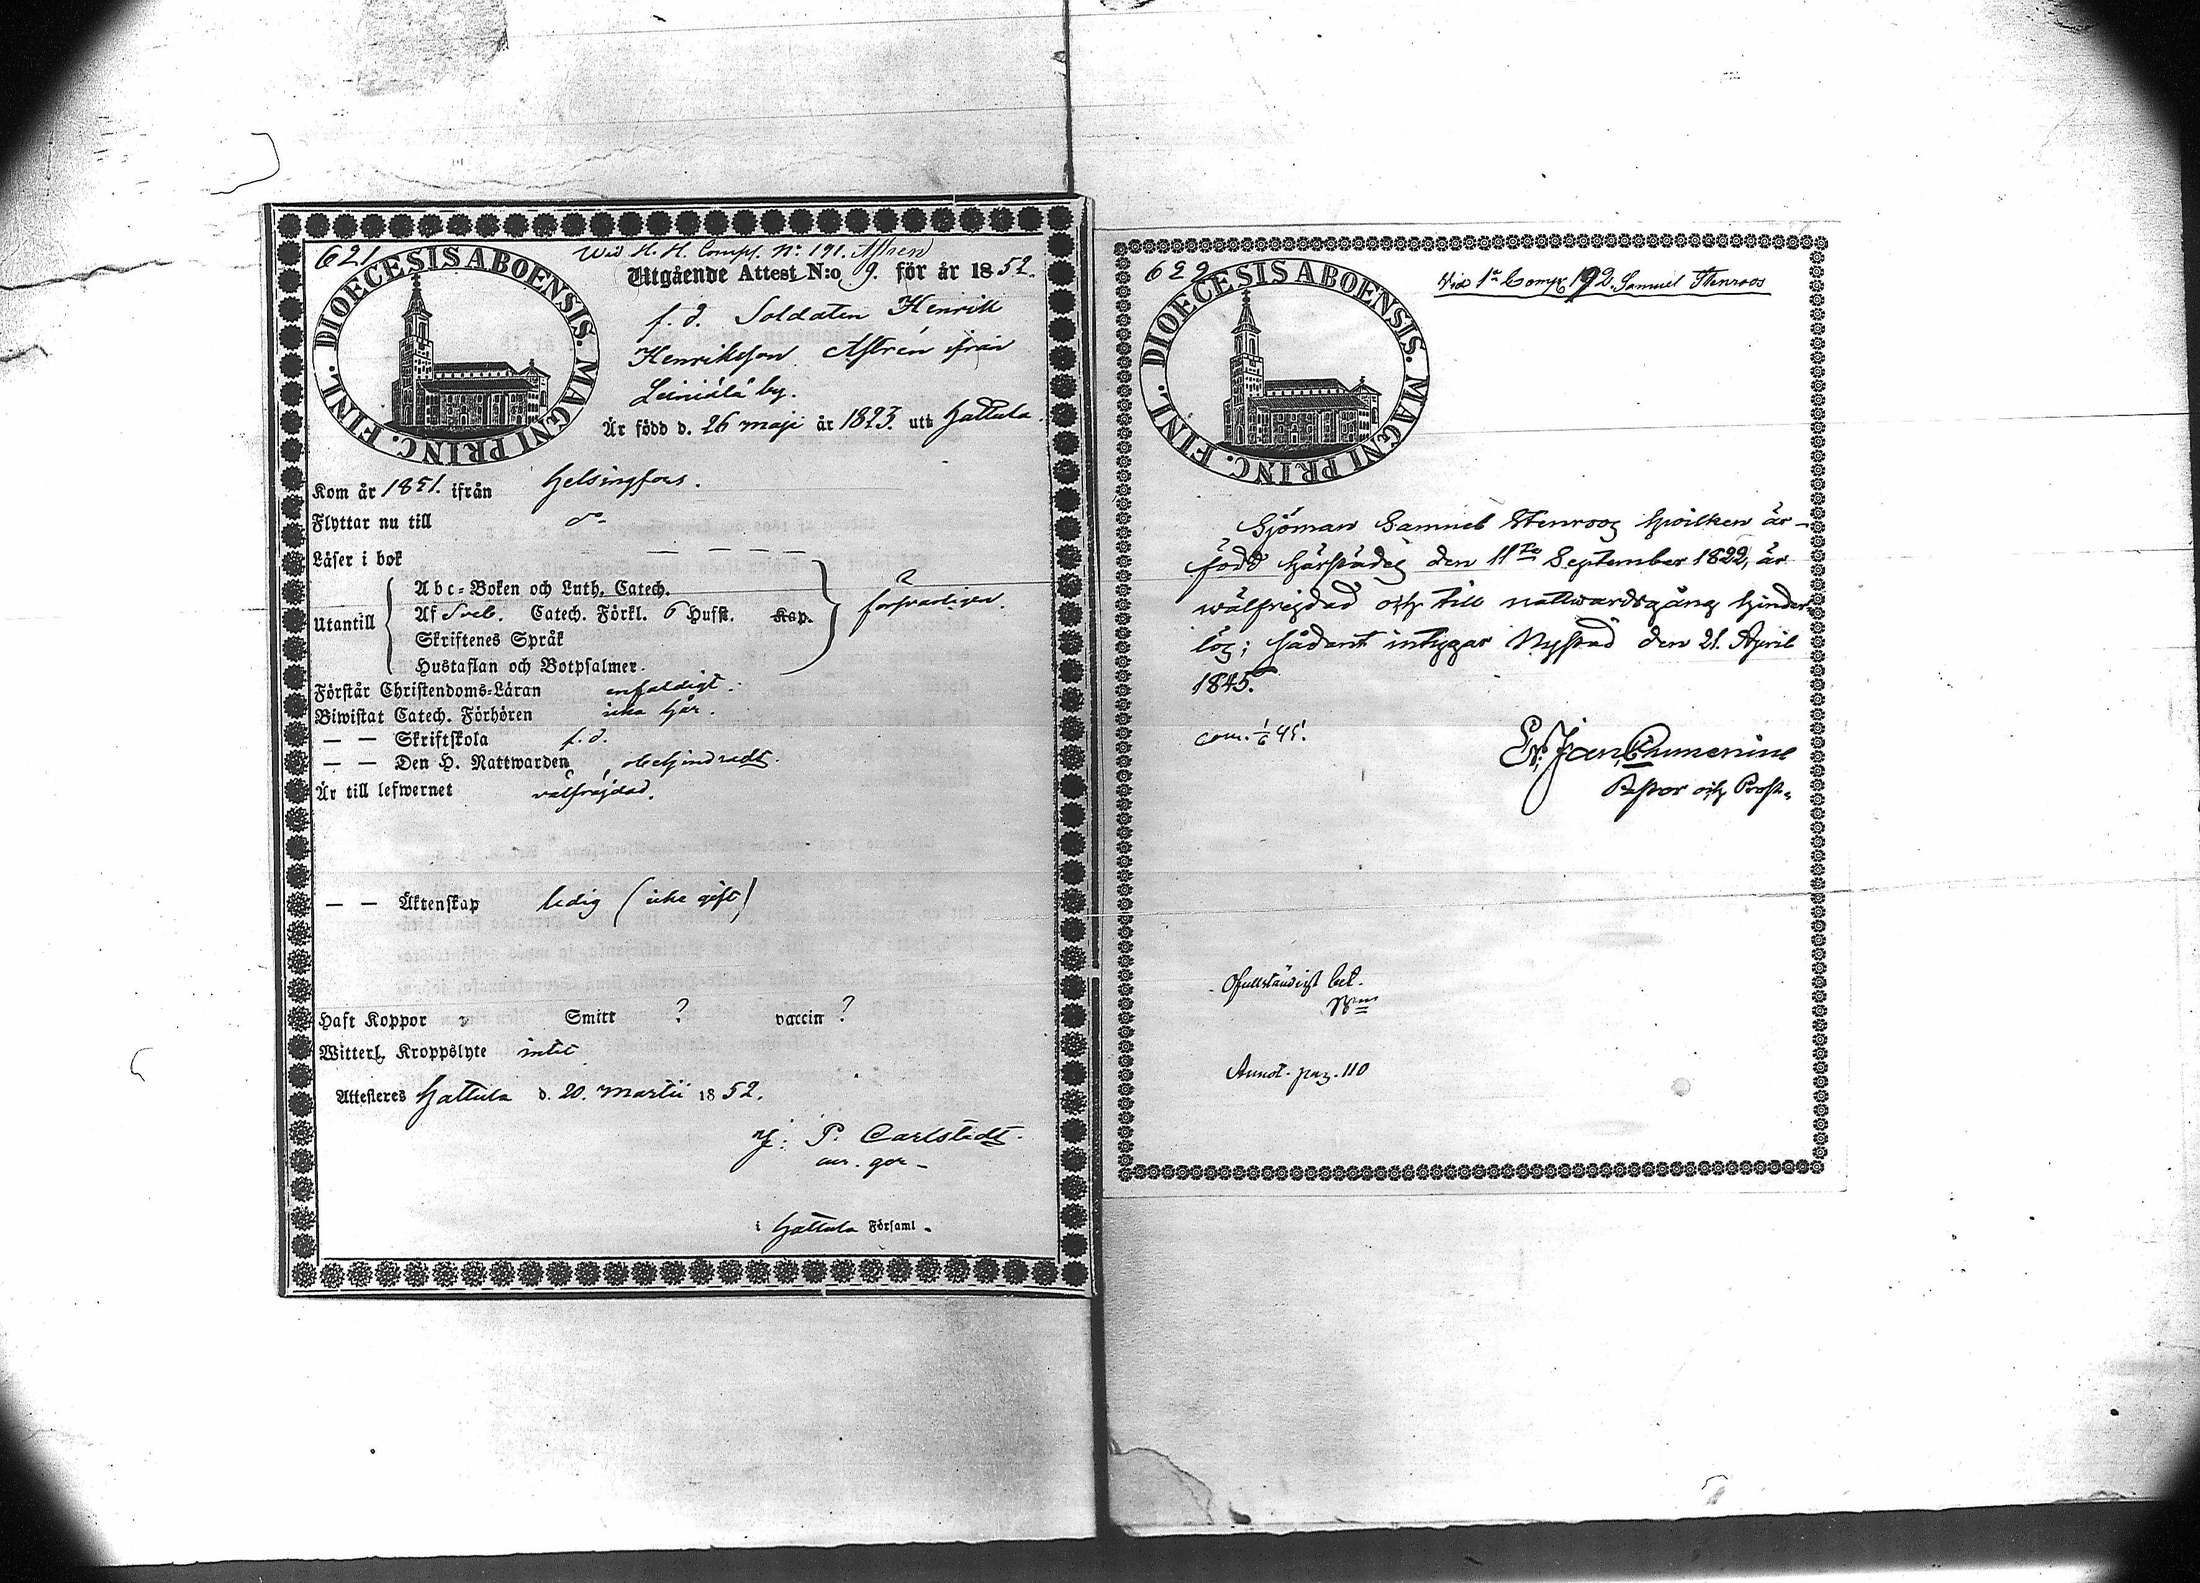 621
Wid H. H. Comp. N: 191. Astren
DIOECESIS ABOENSIS. MAGNI PRINC. FINL.
Utgående Attest N:o 9. för år 1852.
f. d. Soldaten Henrik
Henriksson Astrén ifrån
by.
Är född d. 26 maji år 1823. uti Hattula.
Kom år 1851. ifrån Helsingfors.
Flyttar nu till do
Läser i bok — — — —
Abc-Boken och Luth. Catech.
Utantill Af Sveb. Catech. Förkl. 6 Hufst. Kap. försvarligen.
Skriftenes Språk
Hustaflan och Botpsalmer.
Förstår Christendoms-Läran enfaldigt.
Biwistat Catech. Förhören icke här.
— — Skriftskola f. d.
— — Den H. Nattwarden, obehindradt.
Är till lefwernet välfräjdad.
— — Äktenskap ledig (icke gift)
Haft Koppor " Smitt ? vaccin ?
Witterl. Kroppslyte intet
Attesteres Hattula d. 20. Martii 1852.
P. Carlstedt.
i Hattula Församl.
622
Vid 1a Comp. 192. Samuel Stenroos
DIOECESIS ABOENSIS. MAGNI PRINC. FINL.
Sjöman Samuel Stenroos hwilken är
född härstädes den 11te September 1822, är
wälfrejdad och till nattwardsgång hinder-
lös; sådant intygar Nystad den 21. April
1845.
com. 1/6 45.
Pastor och Prost.
Ofullständigt bet.
Annot. pag. 110